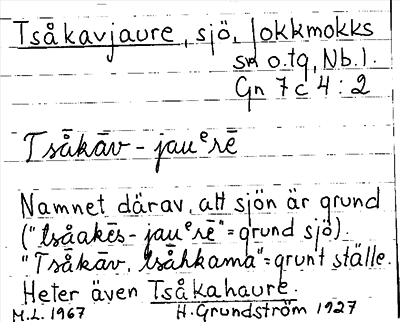 Tsåkavjaure, sjö, Jokkmokks
sn o. tg, Nb. l.
Gn 7 c 4 : 2
Tsåkāv - jauᵉrē
Namnet därav, att sjön är grund
("tsåakēs - jauᵉrē" = grund sjö).
"Tsåkāv, tsåhkama" = grunt ställe.
Heter även Tsåkahaure.
M.L. 1967 H. Grundström 1927